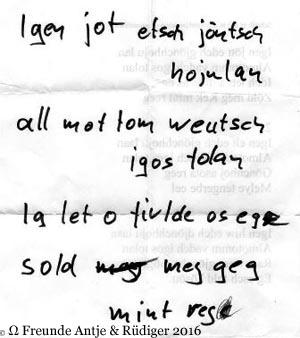 Igen jot etsch jöntsch
hojulan
all mot tom weutsch
igos tolan
Ig let o tivlde os ege
sold meg geg
mint reg
Ω Freunde Antje & Rüdiger 2016